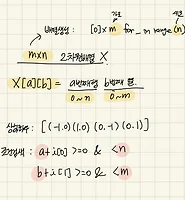 가로
세로
배열생성 : [0]×m for _ in range(n)
m×n 2차원배열 X
X[a][b] = a번배열 b번째 열.
0~n 0~m
상하좌우 : [(-1.0)(1.0) (0.-1)(0.1)]
조건검색 : a+i[0] >=0 & <n
b+i[1] >=0 & <m